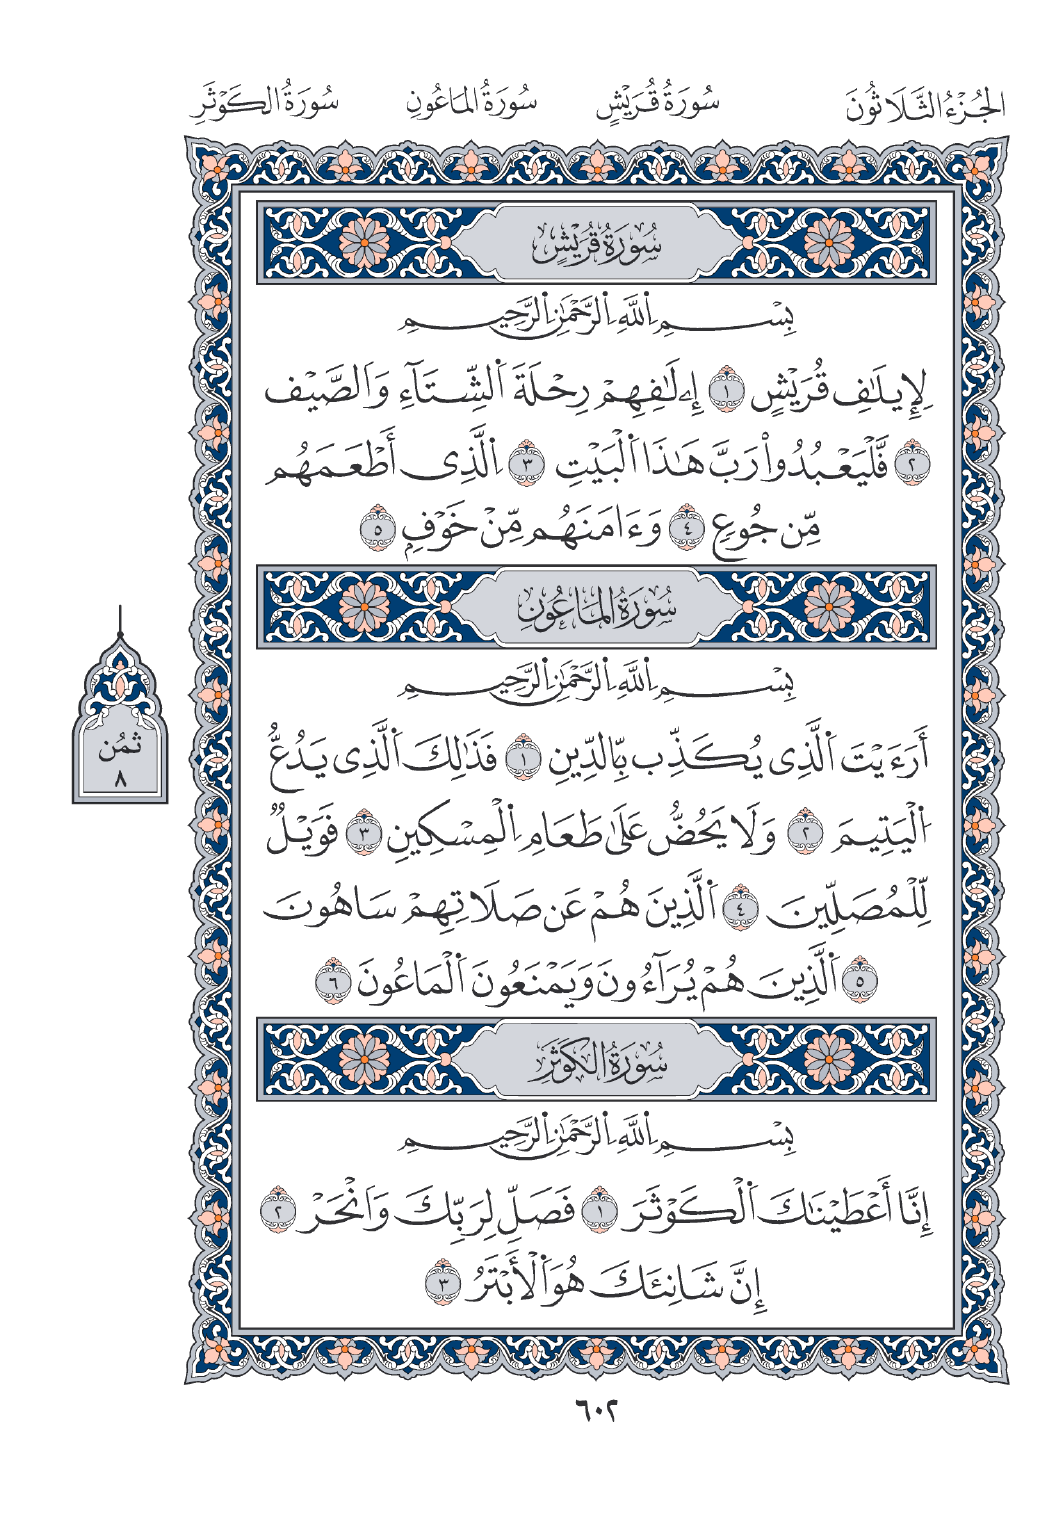 الجُزْءُ الثَّلَاثُونَ سُورَةُ قُرَيْشٍ سُورَةُ المَاعُونِ سُورَةُ الكَوْثَرِ
سُورَةُ قُرَيْشٍ
بِسْمِ اِ۬للَّهِ اِ۬لرَّحْمَٰنِ اِ۬لرَّحِيمِ
لِإِيلَٰفِ قُرَيْشٍ ١ إِۦلَٰفِهِمْ رِحْلَةَ اَ۬لشِّتَآءِ وَالصَّيْف
٢ فَّلْيَعْبُدُواْ رَبَّ هَٰذَا اَ۬لْبَيْتِ ٣ اِ۬لَّذِى أَطْعَمَهُم
مِّن جُوعٍ ٤ وَءَامَنَهُم مِّنْ خَوْفٍ ٥
سُورَةُ المَاعُونِ
بِسْمِ اِ۬للَّهِ اِ۬لرَّحْمَٰنِ اِ۬لرَّحِيمِ
ثمُن
٨
أَرَءَيْتَ اَ۬لَّذِى يُكَذِّب بِّالدِّينِ ١ فَذَٰلِكَ اَ۬لَّذِى يَدُعُّ
اُ۬لْيَتِيمَ ٢ وَلَا يَحُضُّ عَلَىٰ طَعَامِ اِ۬لْمِسْكِينِ ٣ فَوَيْلٌ
لِّلْمُصَلِّينَ ٤ اَ۬لَّذِينَ هُمْ عَن صَلَاتِهِمْ سَاهُونَ
٥ اَ۬لَّذِينَ هُمْ يُرَآءُونَ وَيَمْنَعُونَ اَ۬لْمَاعُونَ ٦
سُورَةُ الكَوْثَرِ
بِسْمِ اِ۬للَّهِ اِ۬لرَّحْمَٰنِ اِ۬لرَّحِيمِ
إِنَّا أَعْطَيْنَٰكَ اَ۬لْكَوْثَرَ ١ فَصَلِّ لِرَبِّكَ وَانْحَرْ ٢
إِنَّ شَانِئَكَ هُوَ اَ۬لْأَبْتَرُ ٣
٦٠٢